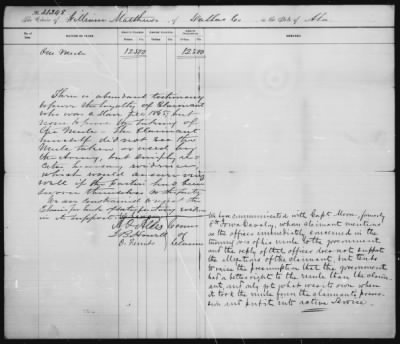 No. 21345
The Claim of William Matthews of Dallas Co. in the State of Ala
NATURE OF CLAIM.
AMOUNT CLAIMED.
AMOUNT ALLOWED.
AMOUNT DISALLOWED.
REMARKS.
One Mule
125.00
125.00
There is abundant testimony
to prove the loyalty of Claimant
who was a slave until 1865, but
none to prove the taking of
the Mule - The Claimant
himself did not see the
Mule taken or used by
the Army, but simply re-
cites hearsay evidence,
which would answer very
well if the parties had been
themselves to
We are constrained to reject the
Claim for want of satisfactory evidence
in its support
A. O. Aldis
J. B. Howell
O. Ferriss
Comrs
of
Claims
We have communicated with Capt. Moon, formerly
Iowa Cavalry, whom claimant mentions
as the officer immediately concerned in the
turning over of his mule to the government
and the reply of that officer does not support
the allegations of the claimant, but tends
to raise the presumption that the government
had a better right to the mule than the claim-
ant, and only got what was its own when
it took the mule from the claimants posses-
sion and put it into active service.